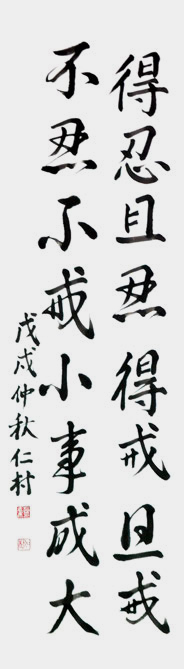 得忍且忍得戒且戒
不忍不戒小事成大
戊戌仲秋仁村